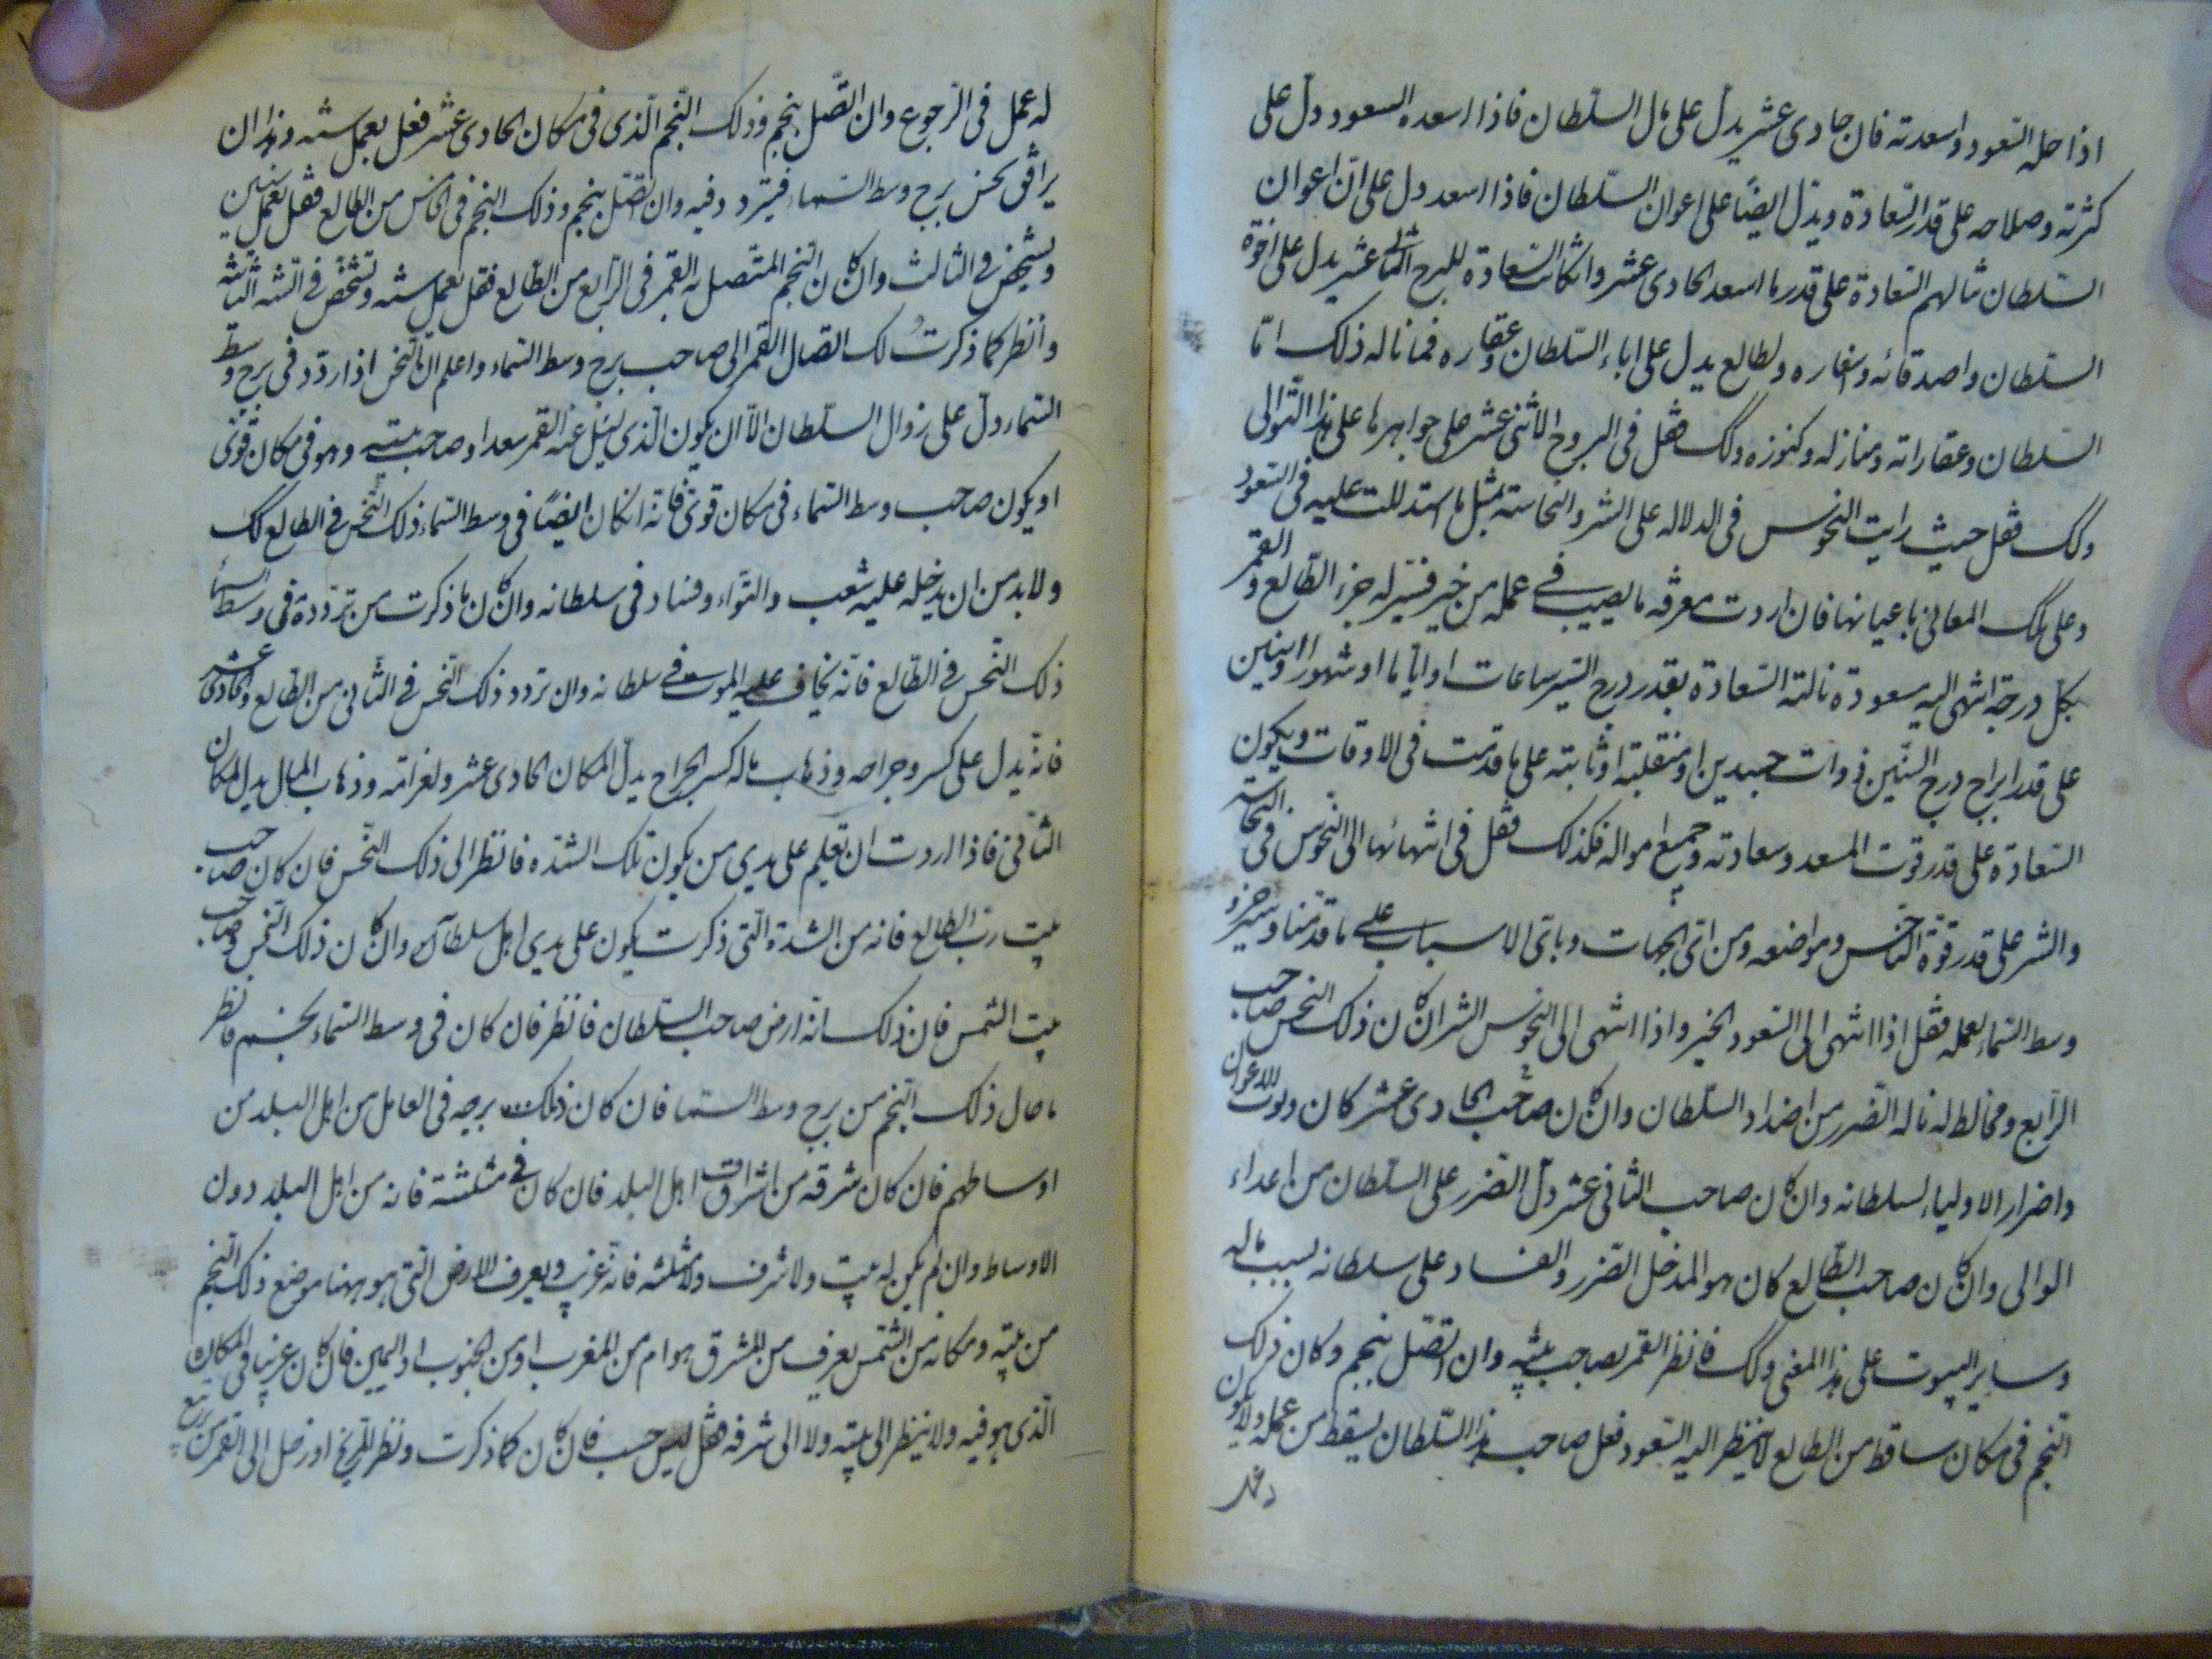 اذا حله السعود واسعدته فان حادى عشر يدل على مال السلطان فاذا اسعده السعود دل على
كثرته وصلاحه على قدر السعادة ويدل ايضًا على اعوان السلطان فاذا اسعد دل على ان اعوان
السلطان تنالهم السعادة على قدر ما اسعد الحادى عشر وان كانت السعادة للبرج الثانى عشر يدل على اخوة
السلطان واصدقائه واسفاره والطالع يدل على اباء السلطان وعقاره فما ناله ذلك اتا
السلطان وعقاراته ومنازله وكنوزه وكك فقل فى البروج الاثنى عشر على جواهرها على هذا التوالى
وكك فقل حيث رايت النحوس فى الدلاله على الشر والنحاسته بمثل ما استدللت عليه فى السعود
وعلى تلك المعانى باعيانها فان اردت معرفه ما يصيب فى عمله من خير فسير له جزء الطالع والقمر
بكل درجة انتهى اليه مسعودة نالته السعادة بقدر درج التسير ساعات او اياما او شهورا او سنين
على قدر ابراج درج السنين ذوات جسدين او منقلبة او ثابته على ما قدمت فى الاوقات ويكون
السعادة على قدر قوت المسعد وسعادته وجميع امواله فكذلك فقل فى انتهائها الى النحوس فى النحاسته
والشر على قدر قوة الناحس ومواضعه ومن اتى الجهات وباتى الاسباب على ما قدمنا وسير جزو
وسط السماء لعمله فقل اذا انتهى الى السعود الخير واذا انتهى الى النحوس الشر ان كان ذلك النحس صاحب
الرابع ومخالط له ناله الضرر من اضداد السلطان وان كان صاحب الحادى عشر كان دلوت للاعوان
واضرار الاولياء لسلطانه وان كان صاحب الثانى عشر دل الضرر على السلطان من اعداء
الوالى وان كان صاحب الطالع كان هو المدخل الضرر والفساد على سلطانه بسبب ماله
وساير البيوت على هذا المعنى وكك فانظر القمر بصاحب بيته وان اتصل بنجم وكان ذلك
النجم فى مكان ساقط من الطالع لا ينظر اليه السعود فعل صاحب هذا السلطان يسقط من عمله ولا يكون
له عمل فى الرجوع وان اتصل بنجم وذلك النجم الذى فى مكان الحادى عشر فعل يعمل سنه وهذا ان
يرافق نحس برج وسط السماء فيتردد فيه وان اتصل بنجم وذلك النجم فى الخامس من الطالع فقل يعمل سنين
ويشخص فى الثالث وان كان النجم المتصل به القمر فى الرابع من الطالع فقل يعمل سنه وتشخص فى السنه الثانيه
وانظر كما ذكرت لك اتصال القمر الى صاحب برج وسط السماء واعلم ان النحس اذا اردد فى برج وسط
السماء دل على زوال السلطان الا ان يكون الذى يسئل عنه القمر سعدا وصاحب بيته وهو فى مكان قوى
او يكون صاحب وسط السماء فى مكان قوى فانه ان كان ايضًا فى وسط السماء ذلك النحس فى الطالع كك
ولا بد من ان يدخله عليه شعب والتواء وفساد فى سلطانه وان كان ما ذكرت من تردده فى وسط السما
ذلك النحس فى الطالع فانه يخاف عليه الموت فى سلطانه وان تردد ذلك النحس فى الثانى من الطالع والحادى عشر
فانه يدل على كسر وجراحه وذهاب ماله كسر الجراح يدل المكان الحادى عشر ولغرامته وذهاب المال يدل المكان
الثانى فاذا اردت ان تعلم على يدي من يكون تلك الشده فانظر الى ذلك النحس فان كان صاحب
بيت رب الطالع فانه من الشدة التى ذكرت يكون على يدي اهل سلطان وان كان ذلك النحس صاحب
بيت الشمس فان ذلك انه ارض صاحب السلطان فانظر فان كان فى وسط السماء نجم فانظر
ما حال ذلك النجم من برج وسط السما فان كان ذلك برجه فى العامل من اهل البلد من
اوساطهم فان كان شرقه من اشراف اهل البلد فان كان فى مثلثته فانه من اهل البلد دون
الاوساط وان لم يكن له بيت ولا شرف ولا مثلثه فانه غريب ويعرف الارض التى هو بها موضع ذلك النجم
من بيته ومكانه من الشمس يعرف من المشرق هو ام من المغرب او من الجنوب او اليمين فان كان غريبا فى المكان
الذى هو فيه ولا ينظر الى بيته ولا الى شرفه فقل ليس حسب فان كان كما ذكرت ونظر المريخ او زحل الى القمر من تربيع